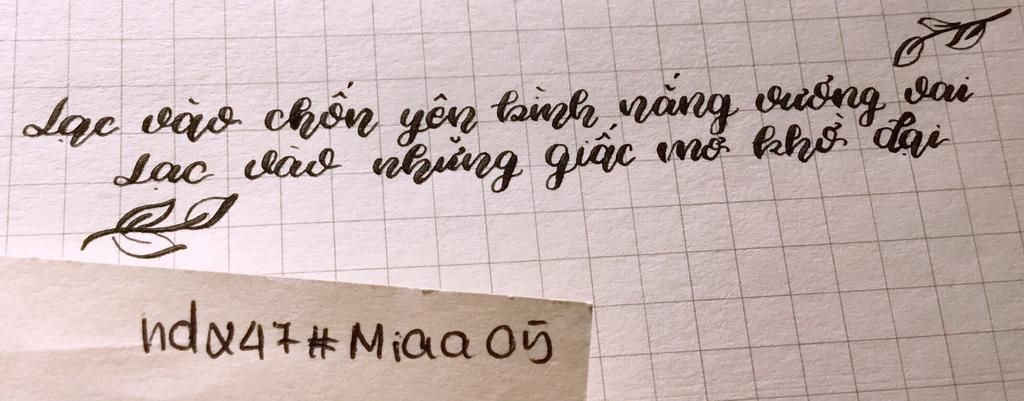 Lạc vào chốn yên bình nắng vương vai
Lạc vào những giấc mơ khờ dại